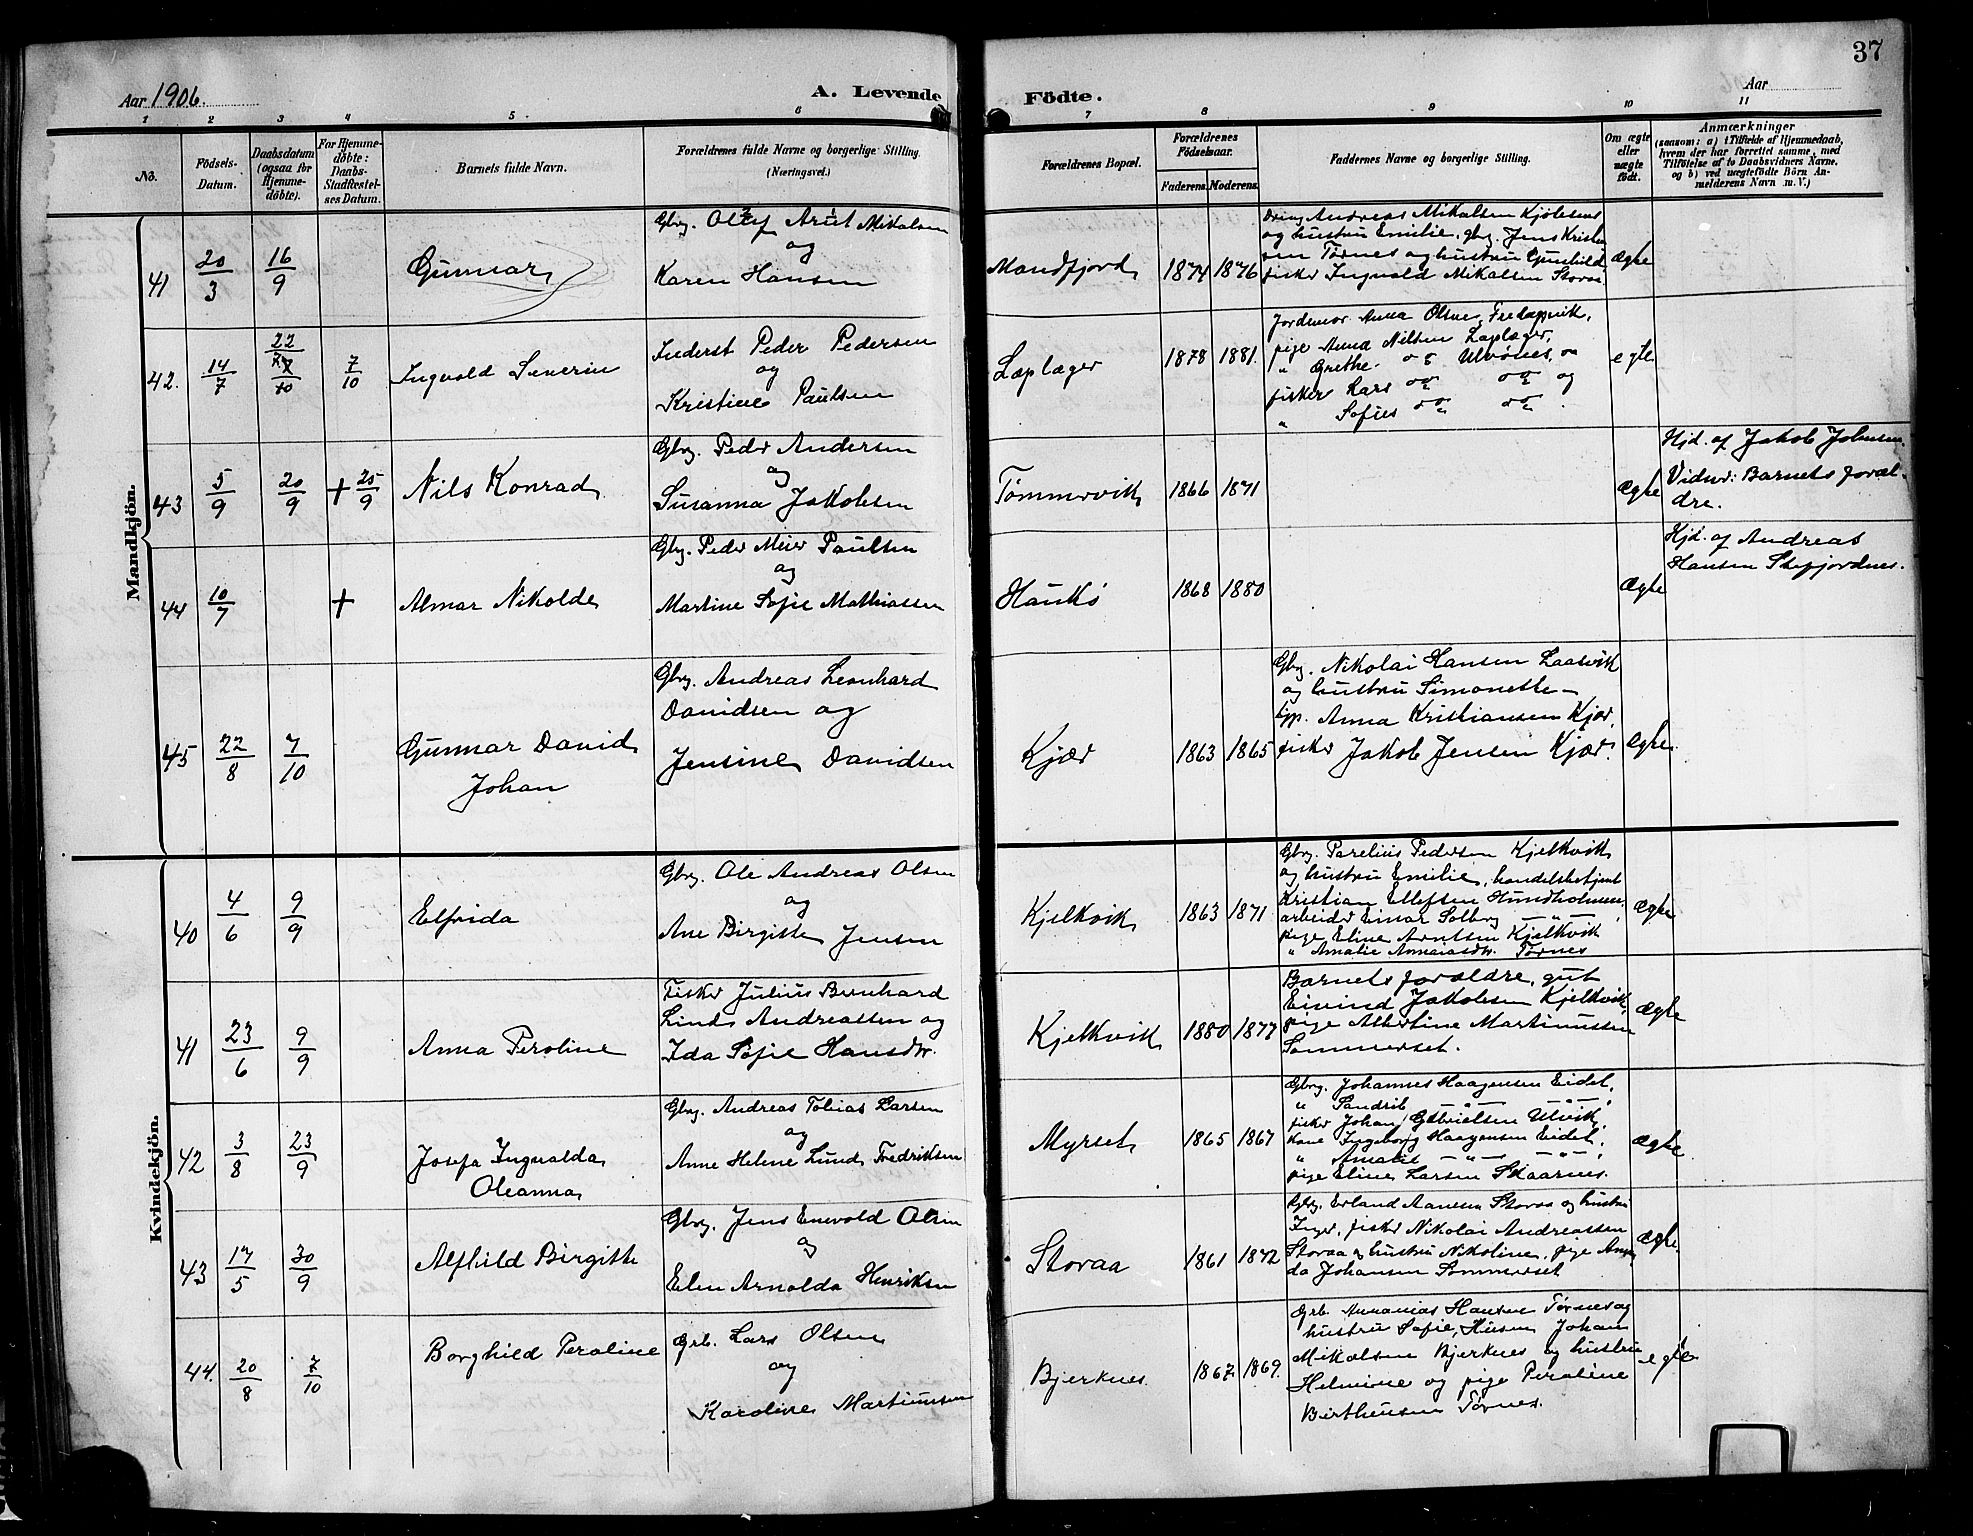 37
Aar 1906.
A. Levende
Födte.
Aar
1 2 3 4 5 6 7 8 9 10 11
No.
Födsels-
Datum.
Daabsdatum
(ogsaa for
Hjemme-
døbte).
For Hjemme-
døbte:
Daabs-
Stadfæstel-
ses Datum.
Barnets fulde Navn.
Forældrenes fulde Navne og borgerlige Stilling.
(Næringsvei.)
Forældrenes Bopæl.
Forældrenes
Födselsaar.
Faderens. Moderens.
Faddernes Navne og borgerlige Stilling.
Om ægte
eller
uægte
født.
Anmærkninger
(saasom: a) i Tilfælde af Hjemmedaab,
hvem der har forrettet samme, med
Tilföielse af to Daabsvidners Navne,
og b) ved uægtefödte Börn An-
melderens Navn m. V.)
Mandkjön.
41 20/3 16/9
Gunnar
Gbrg. Oluf Arnt Mikalsen
og
Karen Hansen
Mandfjord 1874 1876
Andreas Mikalsen
og hustru Emilie, gbrg. Jens Kristian
sen Tørnes og hustru Gunhild,
fisker Ingvald Mikalsen Storaa.
ægte
42. 14/7 22/10 7/10
Ingvald Severin
Inderst Peder Pedersen
og
Kristine Paulsen
Laplæger 1878 1881.
Jordemor Anna Olsnes,
pige Anna Nilsen Laplæger,
" Grethe do Ulvónes, og
fisker Lars do do og
" Sofies do do.
egte
43 5/9 20/9 + 25/9
Nils Konrad
Gbrg. Peder Andersen
og
Susanna Jakobsen
Tømmervik 1866 1871
ægte
Hjd. af Jakob Johnsen.
Vidner: Barnets foræl-
dre.
44 10/7 +
Almar Nikolde
Gbrg. Peder Meier Paulsen
og
Martine Sofie Mathiassen
Haukø 1868 1880
ægte
Hjd. af Andreas
Hansen Skefjordnes.
45 22/8 7/10
Gunnar David
Johan
Gbrg. Andreas Leonhard
Davidsen og
Jensine Davidsen
Kjær 1863 1865
Gbrg. Nikolai Hansen Laasvik
og hustru Simonette -
Anna Kristiansen Kjær,
fisker Jakob Jensen Kjær.
ægte
Kvindekjön.
40 4/6 9/9
Elfrida
Gbrg. Ole Andreas Olsen
og
Ane Birgitte Jensen
Kjelkvik 1863 1871
Gbrg. Parelius Pedersen Kjelkvik
og hustru Emilie, handelsbetjent
Kristian Ellefsen Hundholmen,
arbeider Einar Solberg - " -
pige Eline Arntsen Kjelkvik
" Amalie Annaniasdtr. Tørnes
ægte
41 23/6 9/9
Anna Peroline
Fisker Julius Bernhard
Lind Andreassen og
Ida Sofie Hansdtr.
Kjelkvik 1880 1877
Barnets forældre, gut
Eivind Jakobsen Kjelkvik,
pige Albertine Martinussen
Sommerset.
ægte
42 3/8 23/9
Josefa Ingvalda
Oleanna
Gbrg. Andreas Tobias Larsen
og
Anne Helene Lund Fredriksen
Myrset 1865 1867
Gbrg. Johannes Haagensen Eidet,
" Sandrib - " - - " -,
fisker Johan Gabrielsen Ulvik,
kone Ingeborg Haagensen Eidet,
" Amalie - " - - " -,
pige Eline Larsen Skaarnes.
ægte
43 17/5 30/9
Alfhild Birgitte
Gbrg. Jens Enevold Olsen
og
Elen Arnolda Henriksen
Storaa 1861 1872
Gbrg. Erland Aanesen Storaa og hustru
Inger, fisker Nikolai Andreassen
Storaa og hustru Nikoline, pige Aman
da Johansen Sommerset
ægte
44. 20/8 7/10
Borghild Peroline
Grb. Lars Olsen
og
Karoline Martinussen
Bjerknes 1867 1869.
Grb. Annanias Hansen Tørnes og
hustru Sofie, Husm Johan
Mikalsen Bjerknes og hustru
Helmine og pige Peroline
Berthensen Tørnes.
egte